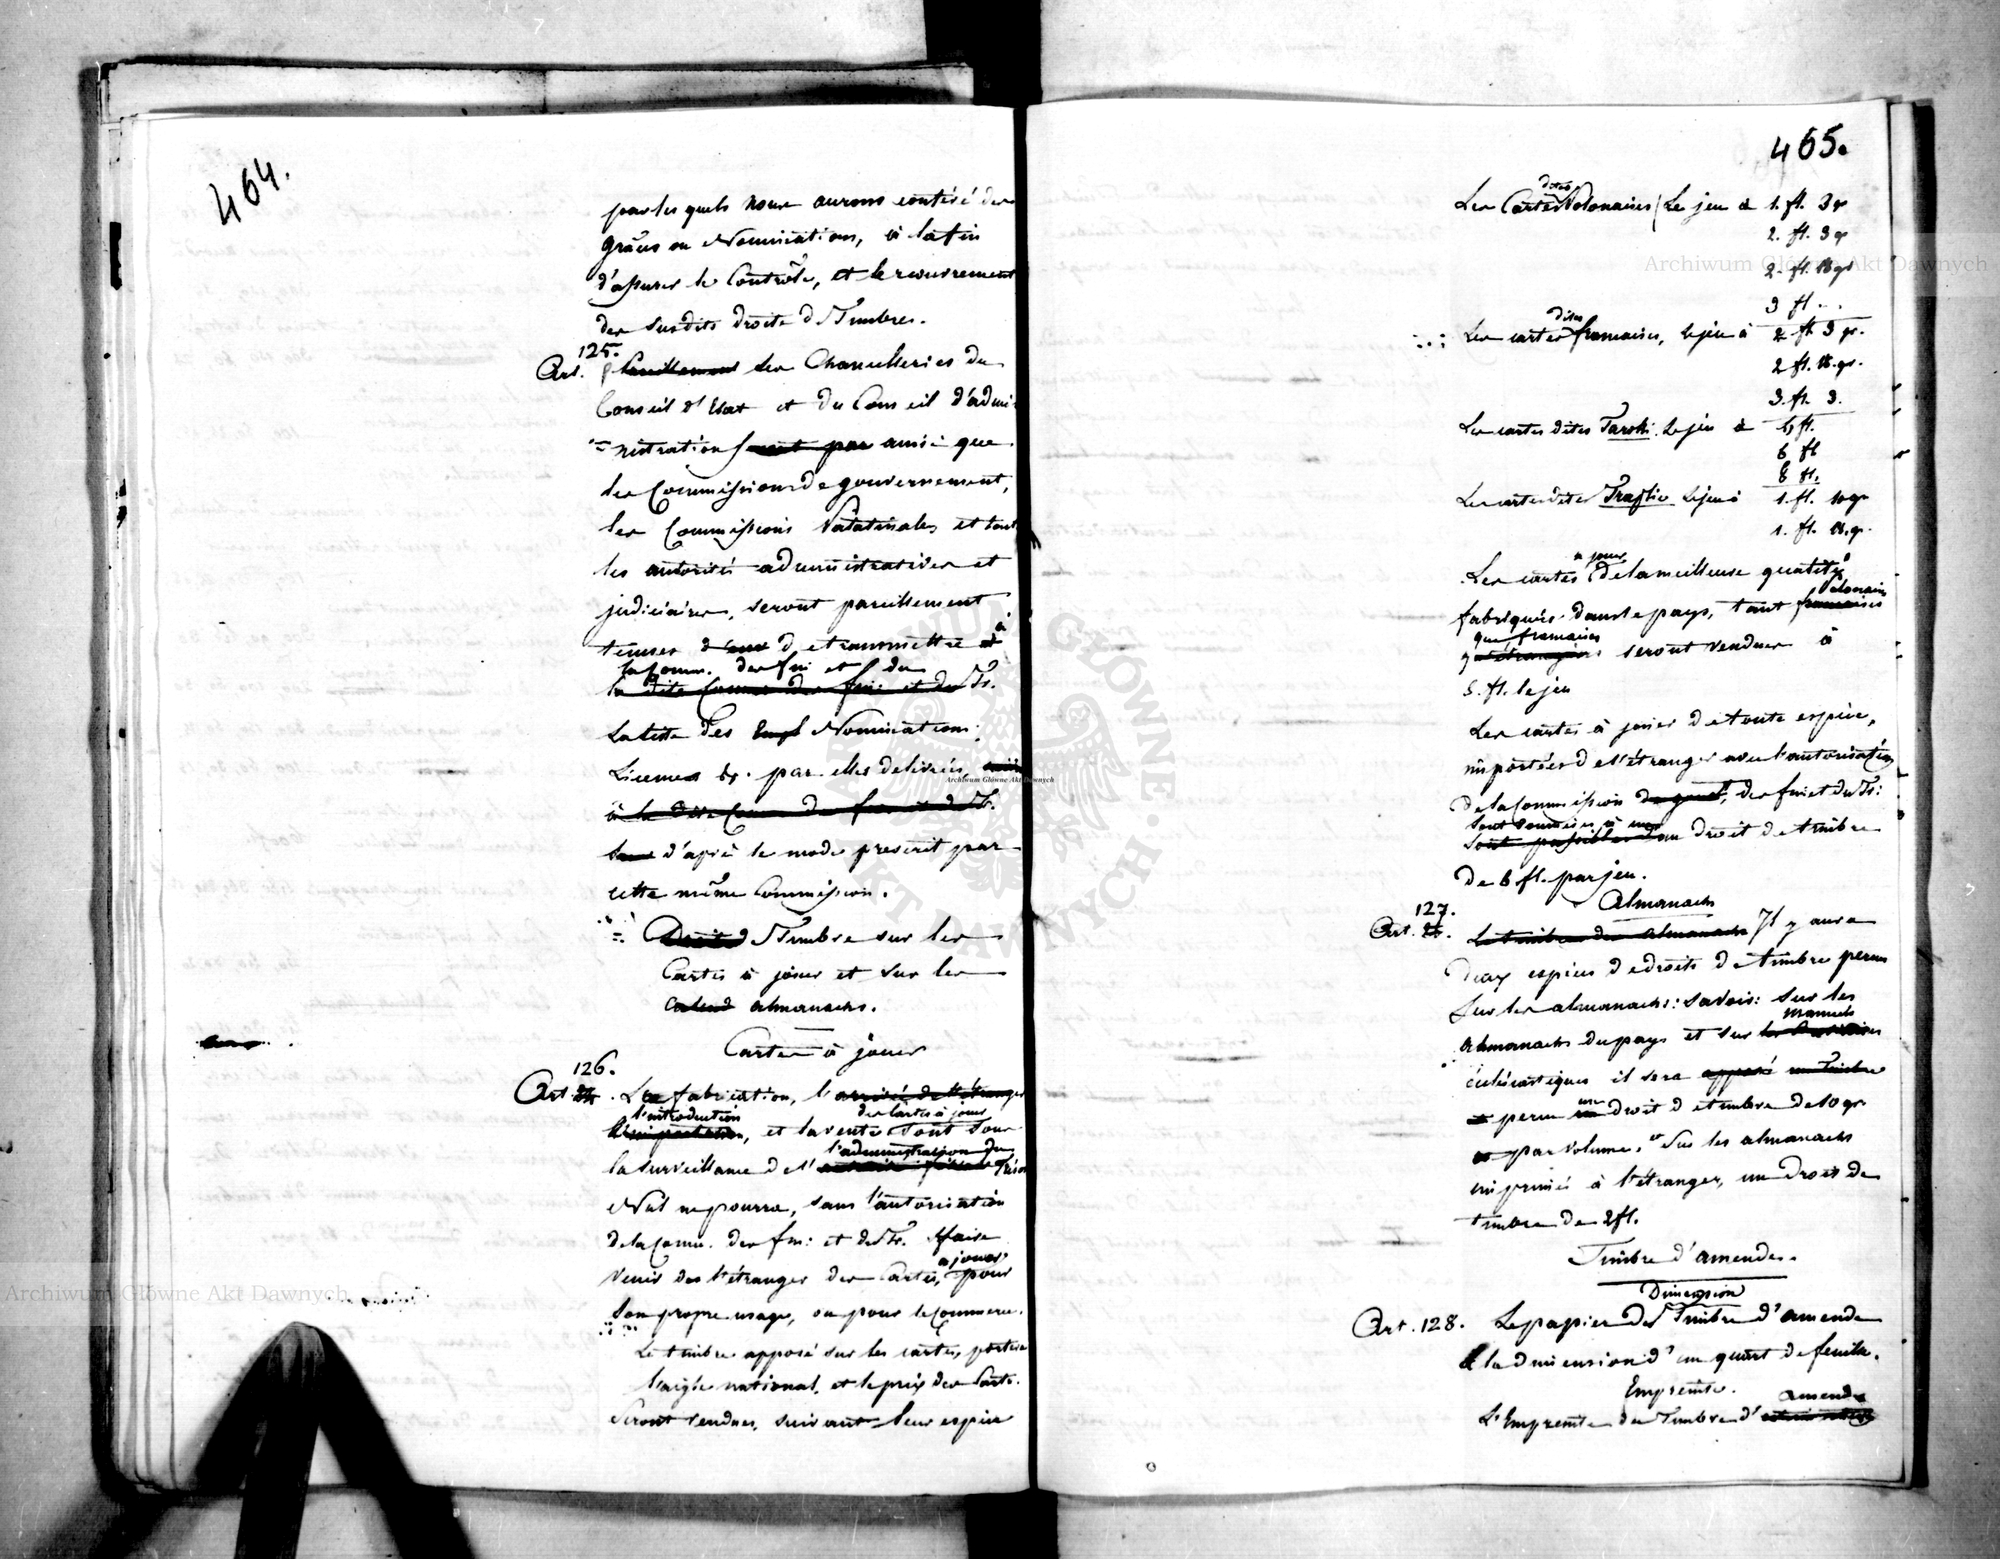 464.
par les quels nous aurons conféré des
grâces ou Nominations, à la fin
d'assurer le Contrôle, et le recouvrement
des susdits droits de Timbres.
125.
Art. les Chancelleries du
Conseil d'Etat et du Conseil d'admi-
nistration ainsi que
les Commissions de gouvernement,
les Commissions Palatinales et tout
les autorités administratives et
judiciaires, seront pareillement
tenues de transmettre à
la Comm. des fin: et du
la dite Comm: des fin: et du Tr.
La liste des Nominations,
Licences &. par elles delivrées,
à la dite Comm: des fin: et du Tr.
d'après le mode prescrit par
cette même Commission.
Droit de Timbre sur les
Cartes à jouer et sur les
Calend almanachs.
Cartes à jouer
126.
Art. La fabrication, l'arrivée de l'étranger
l'introduction des Cartes à jouer
l'importation, et la vente sont sous
l'administration du
la surveillance de l' Trésor
Nul ne pourra, sans l'autorisation
de la Comm. des fin: et du Tr. faire
à jouer
venir de l'étranger des Cartes, pour
son propre usage, ou pour le Commerce.
Le timbre apposé sur les cartes, portera
l'aigle national, et le prix des Cartes.
Seront vendues, suivant leur espèce
465.
dites
Les Cartes Polonaises, Le jeu à 1. fl. 3 gr
2. fl. 3 gr
2. fl. 18 gr
3 fl.
dites
Les cartes françaises, le jeu à 2 fl 3 gr.
2 fl. 18. gr.
3. fl. 3.
Les cartes dites Taroki. le jeu à 6 fl.
6 fl
6 fl.
Les cartes dites le jeu à 1. fl. 10 gr
1. fl. 18. gr.
à jouer
Les cartes de la meilleure qualité
Polonaises
fabriqués dans le pays, tant françaises
que françaises
qu'étrangères seront vendues à
5. fl. le jeu
Les cartes à jouer de toute espèce,
importées de l'étranger avec l'autorisation
de la Commission des fin: et du Tr:
sont soumises à un
sont passibles d'un droit de timbre
de 6 fl. par jeu.
Almanachs
127.
Art. Le timbre des almanachs Il y aura
deux espèces de droits de timbre perçus
sur les almanachs: savoir: sur les
manuels
almanachs du pays et sur les
écclésiastiques il sera apposé un Timbre
perçu un droit de timbre de 10 gr
par volume, sur les almanachs
imprimés à l'étranger, un droit de
timbre de 2 fl.
Timbre d'amendes.
Dimension
Art. 128. Le papier du Timbre d'amende
a la dimension d'un quart de feuille.
Empreinte.
amende
L'Empreinte du Timbre d'
Archiwum Główne Akt Dawnych
Archiwum Główne Akt Dawnych
Archiwum Główne Akt Dawnych
ARCHIWUM GŁÓWNE AKT DAWNYCH.